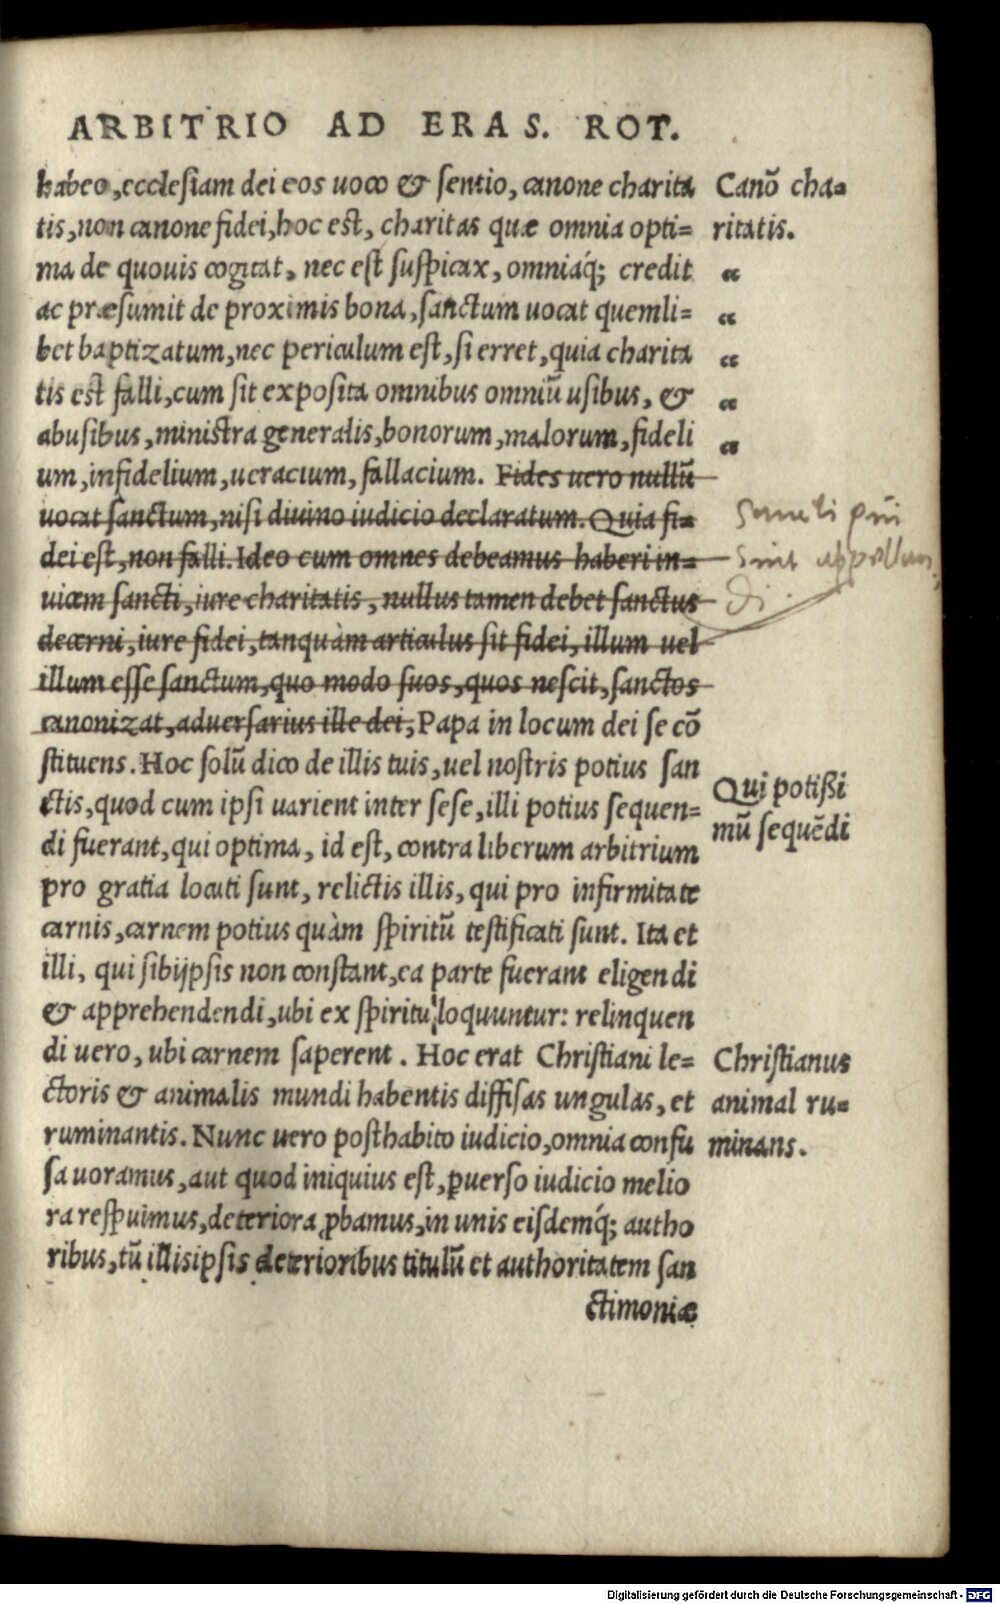 ARBITRIO AD ERAS. ROT.
habeo, ecclesiam dei eos uoco & sentio, canone charita
tis, non canone fidei, hoc est, charitas quæ omnia opti=
ma de quouis cogitat, nec est suspicax, omniaq́; credit
ac præsumit de proximis bona, sanctum uocat quemli=
bet baptizatum, nec periculum est, si erret, quia charita
tis est falli, cum sit exposita omnibus omniū usibus, &
abusibus, ministra generalis, bonorum, malorum, fideli
um, infidelium, ueracium, fallacium. Fides uero nullū
uocat sanctum, nisi diuino iudicio declaratum. Quia fi=
dei est, non falli. Ideo cum omnes debeamus haberi in=
uicem sancti, iure charitatis, nullus tamen debet sanctus
decerni, iure fidei, tanquàm articulus sit fidei, illum uel
illum esse sanctum, quo modo suos, quos nescit, sanctos
canonizat, aduersarius ille dei, Papa in locum dei se cō
stituens. Hoc solū dico de illis tuis, uel nostris potius san
ctis, quod cum ipsi uarient inter sese, illi potius sequen=
di fuerant, qui optima, id est, contra liberum arbitrium
pro gratia locuti sunt, relictis illis, qui pro infirmitate
carnis, carnem potius quàm spiritū testificati sunt. Ita et
illi, qui sibijpsis non constant, ea parte fuerant eligendi
& apprehendendi, ubi ex spiritu loquuntur: relinquen
di uero, ubi carnem saperent. Hoc erat Christiani le=
ctoris & animalis mundi habentis diffisas ungulas, et
ruminantis. Nunc uero posthabito iudicio, omnia confu
sa uoramus, aut quod iniquius est, ꝑuerso iudicio melio
ra respuimus, deteriora ꝓbamus, in unis eisdemq́; autho
ribus, tū illis ipsis deterioribus titulū et authoritatem san
ctimoniæ
Canō cha=
ritatis.
“
“
“
“
“
sint
Qui potißi
mū sequēdi
Christianus
animal ru=
minans.
Digitalisierung gefördert durch die Deutsche Forschungsgemeinschaft - DFG